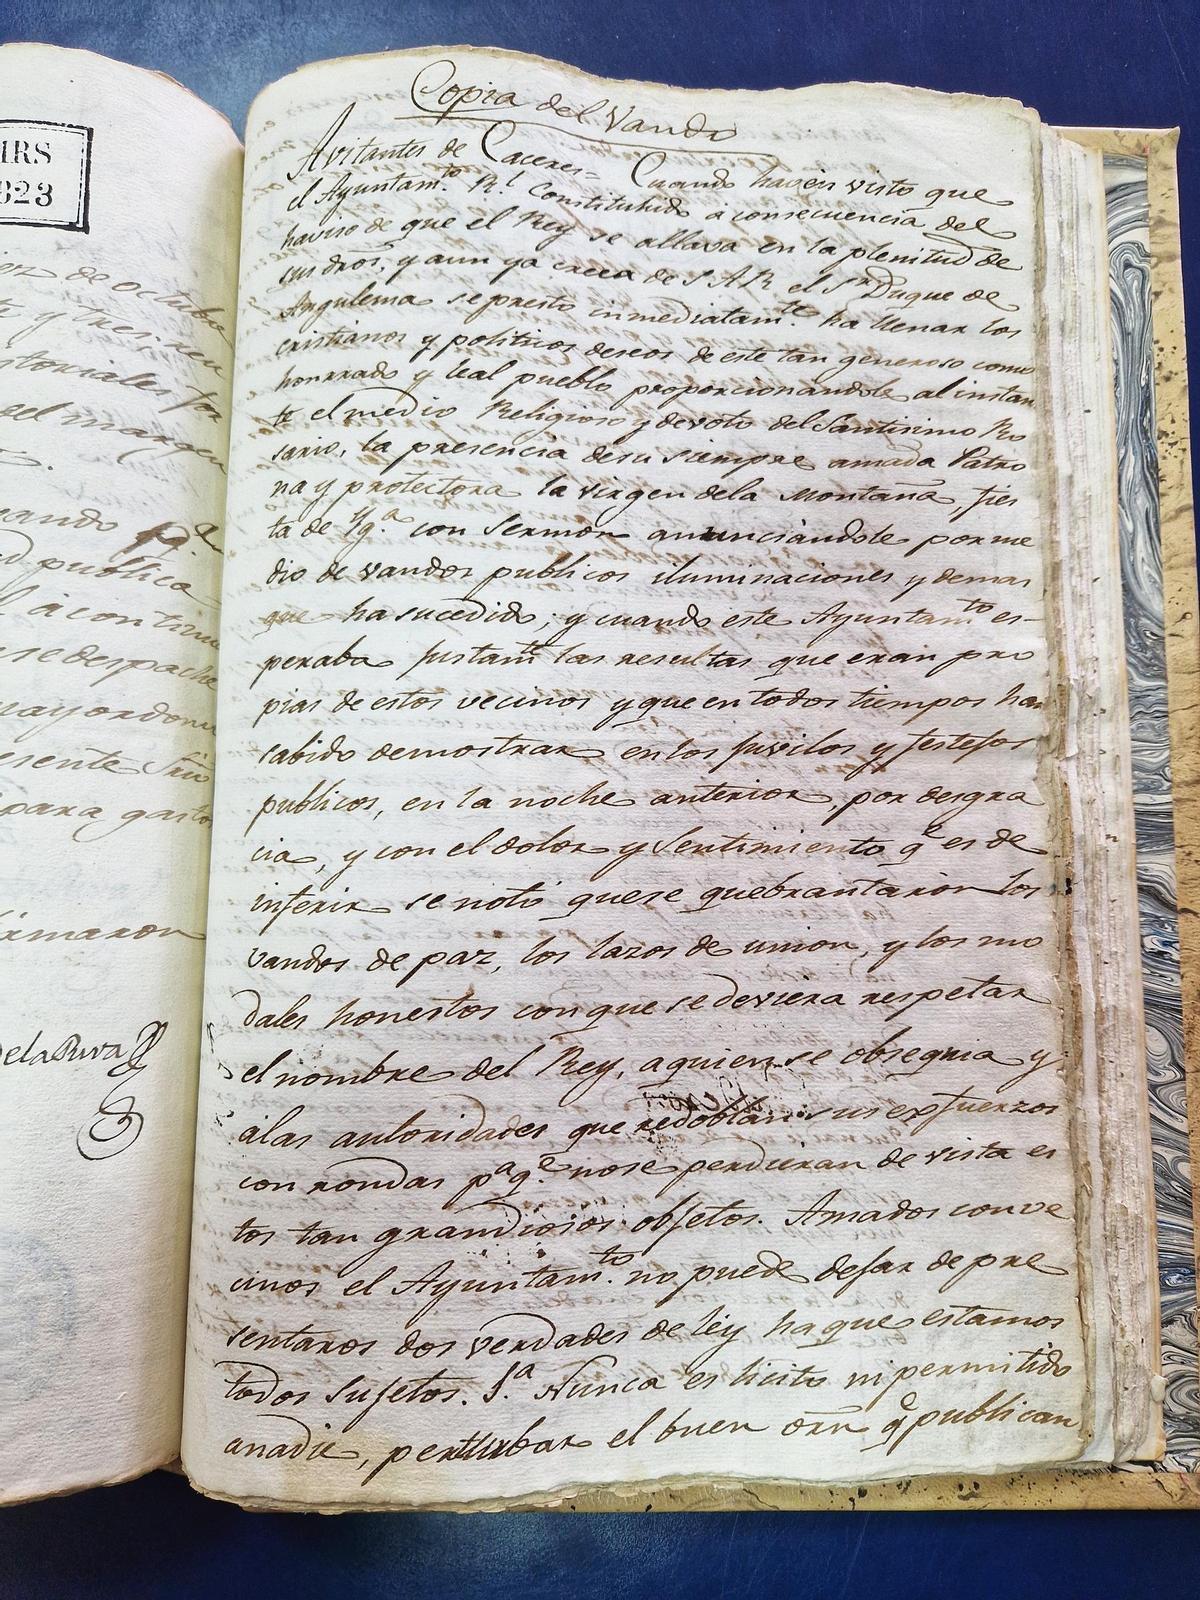 IRS
823
de octubre
y tres. reu
del margen
publica
à continu
se despache
mayordomo
esente Srio
para gastos
firmaron
de la Riva
Copia del Vando
Avitantes de Caceres= Cuando haveis visto que
el Ayuntam.to R.l Constituhido à consecuencia del
haviso de que el Rey se allava en la plenitud de
sus dros, y aun ya cerca de S A R el Sr Duque de
Angulema se presto inmediatam.te ha llenar los
cristianos y politicos deseos de este tan generoso como
honrrado y leal pueblo proporcionandole al instan
te el medio Religioso y devoto del Santisimo Ro
sario, la presencia de su siempre amada Patro
na y protectora la virgen dela Montaña, fies
ta de Yg.a con Sermon anunciandole por me
dio de vandos publicos iluminaciones y demas
que ha sucedido; y cuando este Ayuntam.to es-
peraba justam.te las resultas que eran pro
pias de estos vecinos y que en todos tiempos han
sabido demostrar en los juvilos y festejos
publicos, en la noche anterior, por desgra
cia, y con el dolor y Sentimiento q.e es de
inferir se notó quese quebrantaron los
vandos de paz, los lazos de union, y los mo
dales honestos con que se deviera respetar
el nombre del Rey, a quien se obsequia y
álas autoridades que redoblan sus esfuerzos
con rondas p.a q.e nose perdieran de vista es
tos tan grandiosos objetos. Amados conve
cinos el Ayuntam.to no puede dejar de pre
sentaros dos verdades de ley ha que estamos
todos sujetos. 1.a Nunca es licito ni permitido
anadie, perturbar el buen orn q.e publican